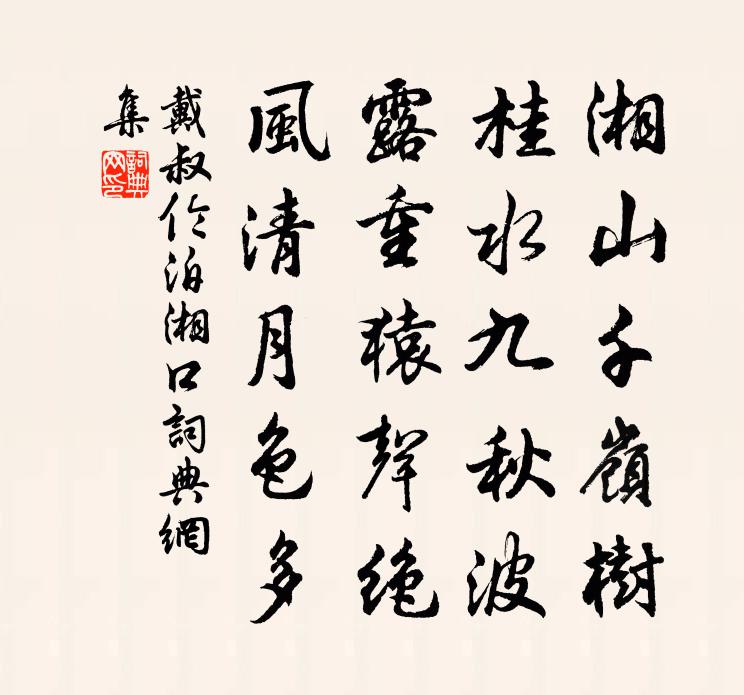 湘山千嶺樹
桂水九秋波
露重猿聲絶
風清月色多
戴叔伦泊湘口詞典網
集
詞典
网印